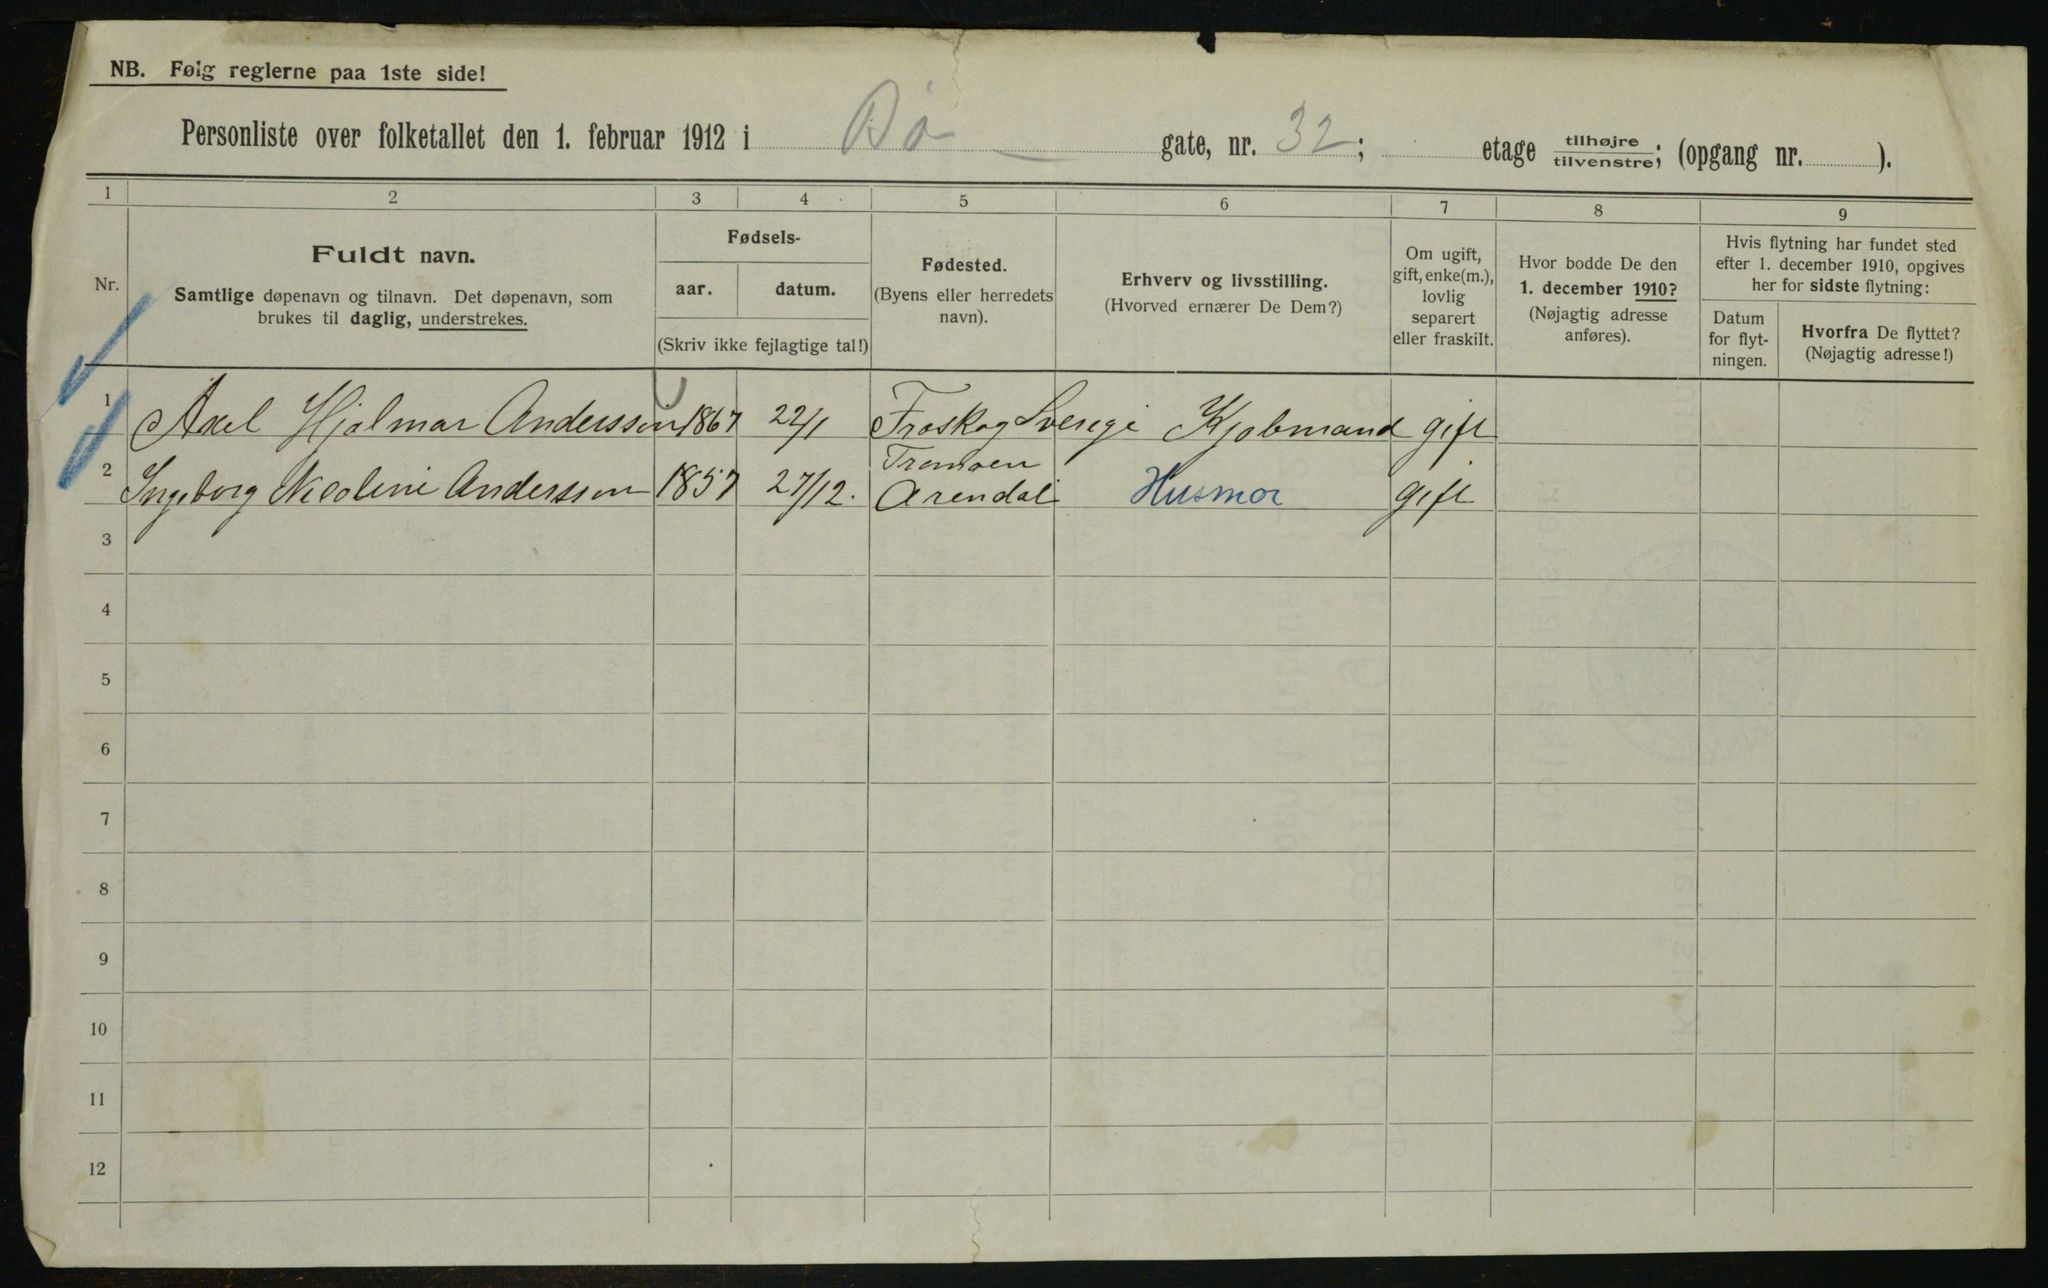 NB. Følg reglerne paa 1ste side!
Personliste over folketallet den 1. februar 1912 i Bø gate, nr. 32; etage tilhøjre/tilvenstre; (opgang nr. ).
1 2 3 4 5 6 7 8 9
Nr.
Fuldt navn.
Samtlige døpenavn og tilnavn. Det døpenavn, som
brukes til daglig, understrekes.
Fødsels-
aar. datum.
(Skriv ikke fejlagtige tal!)
Fødested.
(Byens eller herredets
navn).
Erhverv og livsstilling.
(Hvorved ernærer De Dem?)
Om ugift,
gift, enke(m.),
lovlig
separert
eller fraskilt.
Hvor bodde De den
1. december 1910?
(Nøjagtig adresse
anføres).
Hvis flytning har fundet sted
efter 1. december 1910, opgives
her for sidste flytning:
Datum
for flyt-
ningen.
Hvorfra De flyttet?
(Nøjagtig adresse!)
1 Axel Hjalmar Andersson 1867 22/1 Froskog Sverige Kjøbmand gift
2 Ingeborg Nicoline Andersson 1857 27/12. Tromøen
Arendal Husmor gift
3
4
5
6
7
8
9
10
11
12